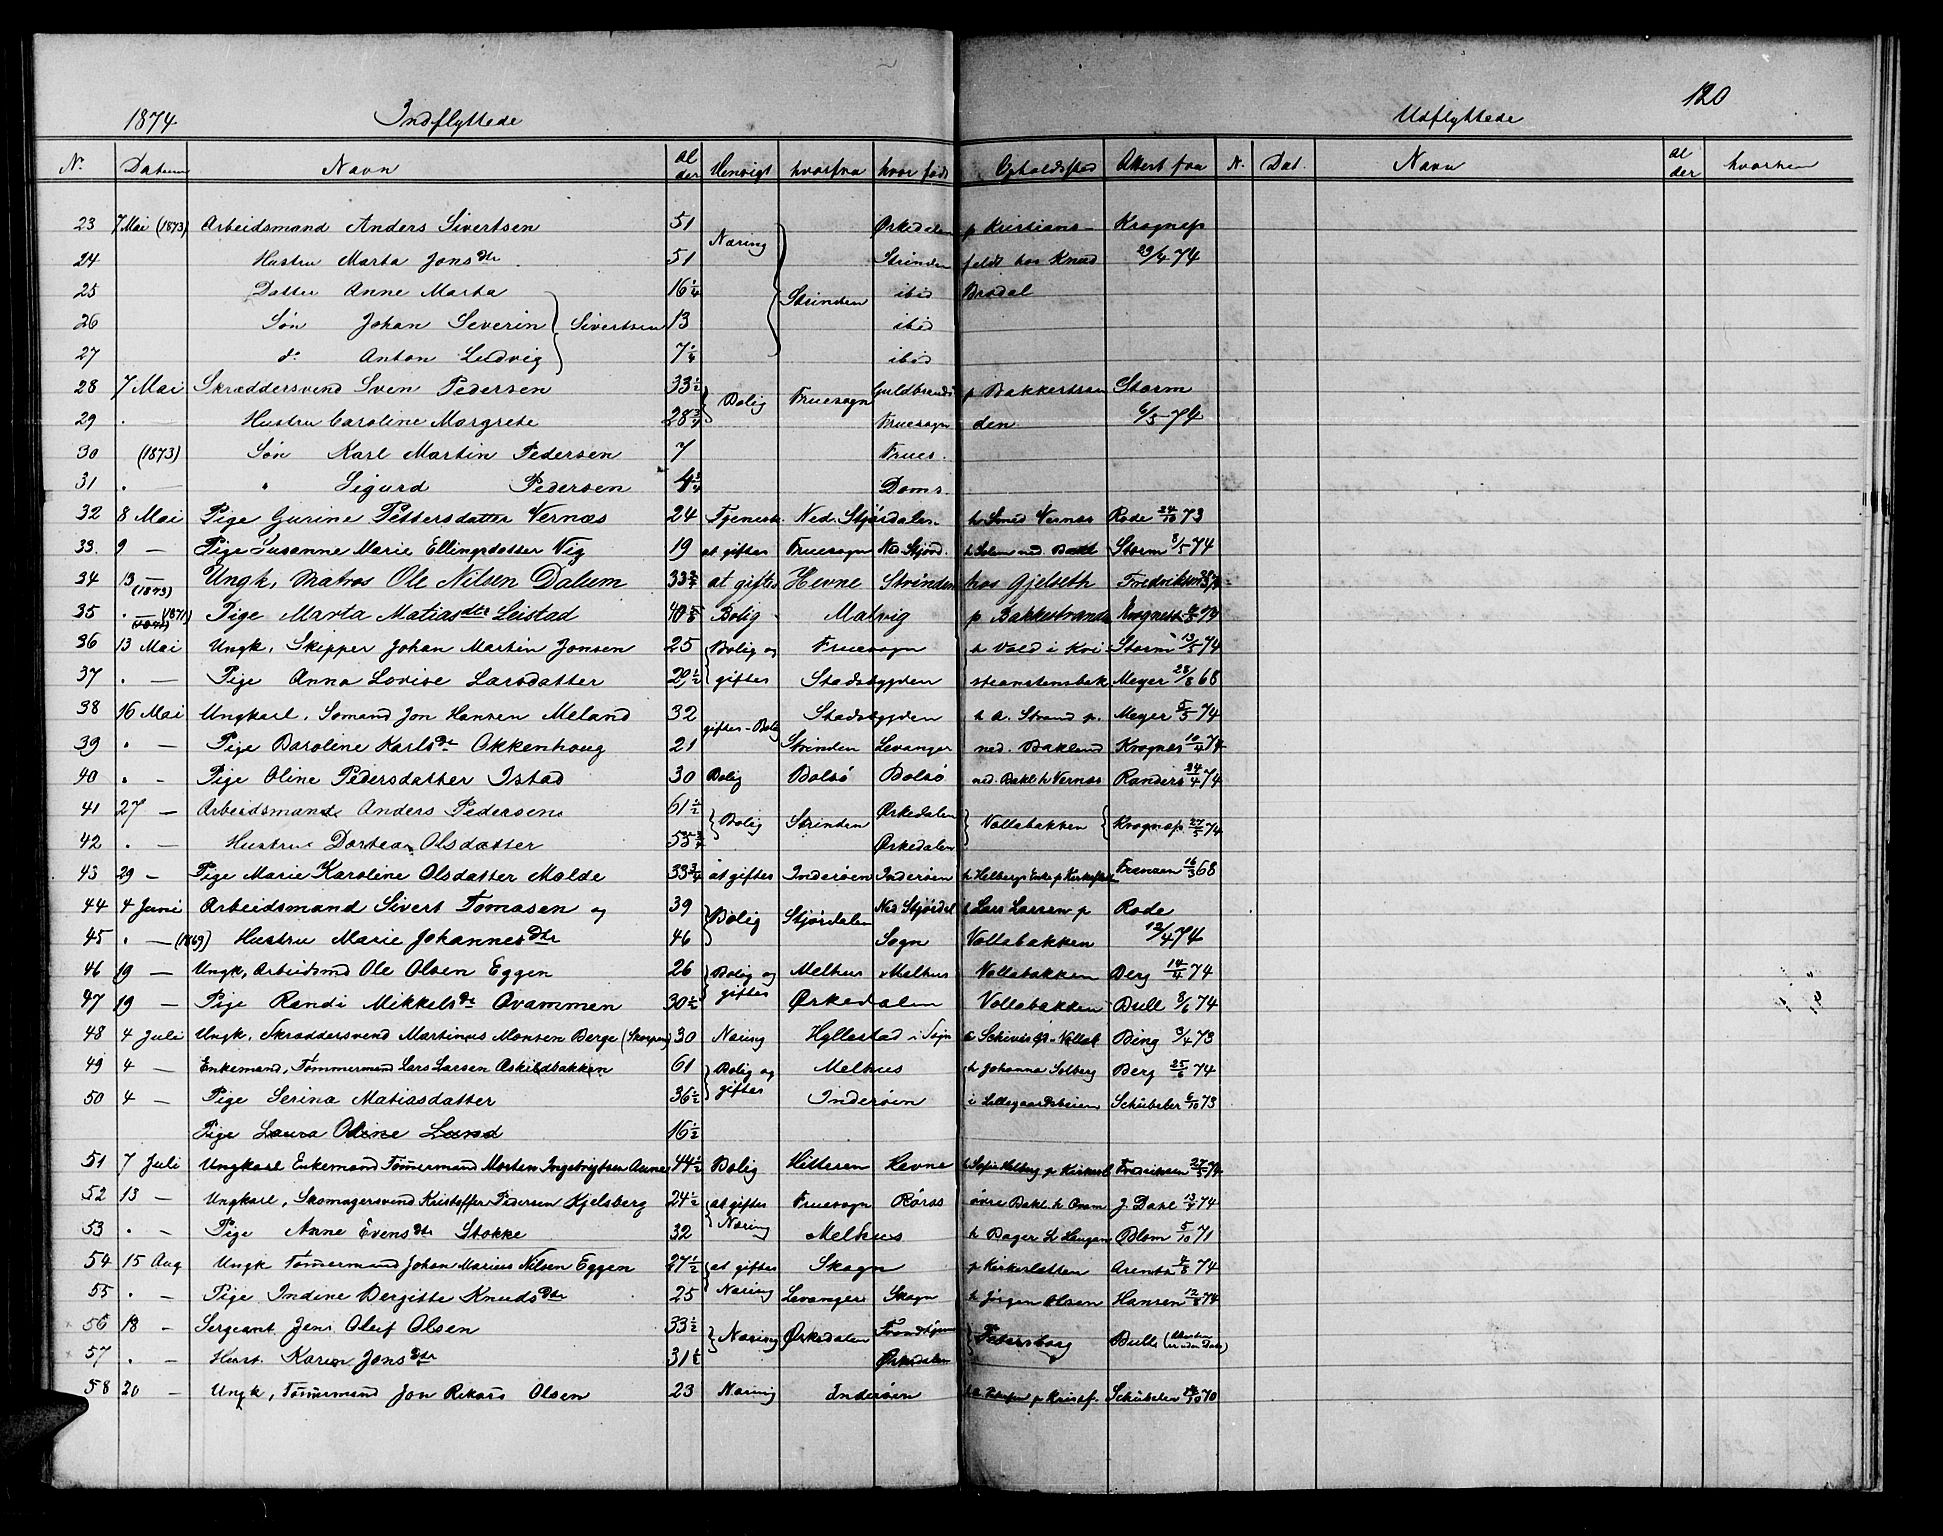 120
1874 Indflyttede Udflyttede
N. Datum Navn Alder Henvigt hvorfra hvor født Opholdssted Attest fra N. Dat. Navn Alder hvorhen
23 7 Mai (1873) Arbeidsmand Anders Sivertsen 51 Næring Ørkedalen p Kristians- Krogness
24 Hustru Marta Jonsdtr 51 Strinden feldt hos Knud 29/4 74
25 Datter Anne Marta 16 1/4 Strinden ibid Brødal
26 Søn Johan Severin Sivertsen 13 ibid
27 do Anton Ludvig 7 1/4 ibid
28 7 Mai Skræddersvend Sven Pedersen 33 1/2 Bolig Fruesogn Guldbrands p Bakkestran Storm
29 Hustru Caroline Margrete 28 3/4 Fruesogn den 6/5 74
30 (1873) Søn Karl Martin Pedersen 7 Frues.
31 " Sigurd Pedersen 4 3/4 Doms.
32 8 Mai Pige Gurine Pettersdatter Vernæs 24 Tjeneste Ned. Stjørdalen h. Smed Vernæs Rode 24/10 73
33 9 — Pige Susanne Marie Ellingsdatter Vig 19 at giftes Fruesogn Ned. Stjørd. ned. Bakl Storm 8/5 74
34 13 — (1873) Ungk, Matros Ole Nilsen Dalum 33 3/4 at giftes Hevne Strinden hos Gjelseth Fredriksen
35 . — (1871) Pige Marta Matiasdtr Leistad 40 5/8 Bolig Malvig p Bakkestranden Krogness 73
36 13 Mai Ungk, Skipper Johan Martin Jonsen 25 Bolig og Fruesogn h Vold i Kri- Storm 13/5 74
37 . — Pige Anna Lovise Larsdatter 29 1/2 giftes Stadsbygden stianstensbak Meyer 28/8 68
38 16 Mai Ungkarl, Sømand Jon Hansen Meland 32 giftes-Bolig Stadsbygden h A. Strand p. Meyer 5/5 74
39 . — Pige Baroline Karlsdr Okkenhoug 21 Strinden Levanger ned. Bakland Krogness 10/4 74
40 . - Pige Oline Pedersdatter Istad 30 Bolig Bolsø Bolsø ned. Bakl h Vernæs Randers 24/4 74
41 27 — Arbeidsmand Anders Pedersen 61 1/2 Bolig Strinden Ørkedalen Vollabakken Krogness 27/5 74
42 . — Hustru Dortea Olsdatter 55 3/4 Ørkedalen
43 29 - Pige Marie Karoline Olsdatter Molde 33 3/4 at giftes Inderøen Inderøen h Helbergs Enke p Kirkeslett Franzen 16/3 68
44 4 Juni Arbeidsmand Sivert Tomasen og 39 Bolig Stjørdalen Ned Stjørdal h Lars Larsen p Rode
45 . — (1869) Hustru Marie Johannesdtr 46 Sogn Vollabakken 12/4 74
46 19 — Ungk, Arbeidsmd Ole Olsen Eggen 26 Bolig og Melhus Melhus Vollabakken Berg 14/4 74
47 19 — Pige Randi Mikkelsdr Qvammen 30 1/2 giftes Ørkedalen Vollabakken Bull 8/6 74
48 4 Juli Ungk, Skræddersvend Martinus Monsen Berge 30 Næring Hyllestad i Sogn Bing 3/4 73
49 4 — Enkemand, Tømmermand Lars Larsen Oskildbakken 61 Bolig og Melhus h Johanna Solberg Berg 25/6 74
50 4 — Pige Serina Matiasdatter 36 1/2 giftes Inderøen i Lillegaardsveien Schübeler 6/10 73
Pige Laura Oline Lund 16 1/2
51 7 Juli Ungkarl Enkemand Tømmermand Morten Ingebrigtsen Aune 44 1/2 Bolig Hitteren Hevne Fredriksen 27/5 74
52 13 — Ungkarl, Skomagersvend Kristoffer Pedersen Kjelsberg 24 1/2 at giftes Fruesogn Røros øvre Bakl. h Qvam J. Dahl 13/7 74
53 . - Pige Anne Evensdtr Stokke 32 Næring Melhus h Bager Blom 5/10 71
54 15 Aug Ungk Tømmermand Johan Marius Nilsen Eggen 27 1/2 at giftes Skogn p Kirkesletten Arentz 74
55 . — Pige Indine Bergitte Knudsdtr 25 Næring Levanger Skogn h Jørgen Olsen Hansen 12/8 74
56 18 - Sergeant Jens Oluf Olsen 33 1/2 Næring Ørkedalen Trondhjem Petersborg Bull
57 . - Hust. Karen Jonsdtr 31 1/2 Ørkedalen
58 20 - Ungk, Tømmermand Jon Rekors Olsen 23 Næring Inderøen Schübeler 70